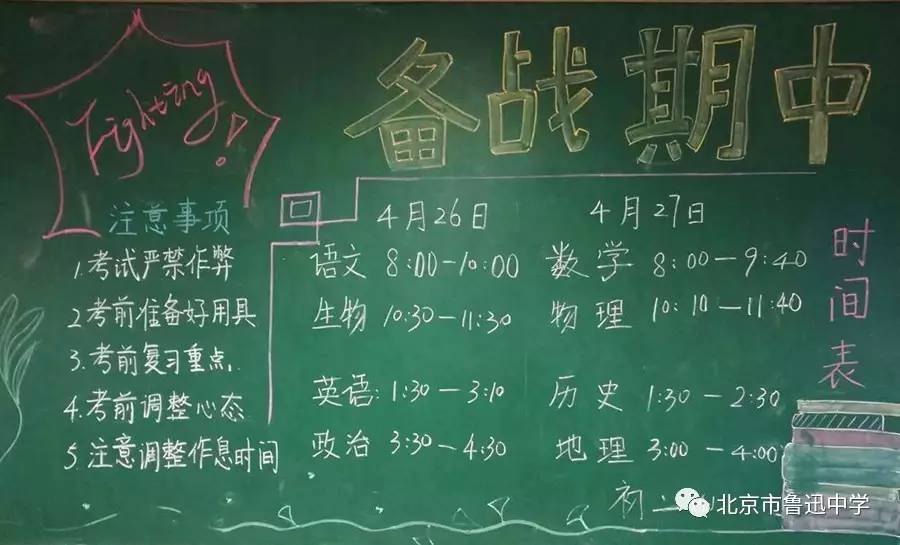 Fighting!
备战期中
注意事项
1.考试严禁作弊
2.考前准备好用具
3.考前复习重点.
4.考前调整心态
5.注意调整作息时间
4月26日
语文 8:00-10:00
生物 10:30-11:30
英语: 1:30-3:10
政治 3:30-4:30
4月27日
数学 8:00-9:40
物理 10:10-11:40
历史 1:30-2:30
地理 3:00-4:00
时间表
初二
北京市鲁迅中学